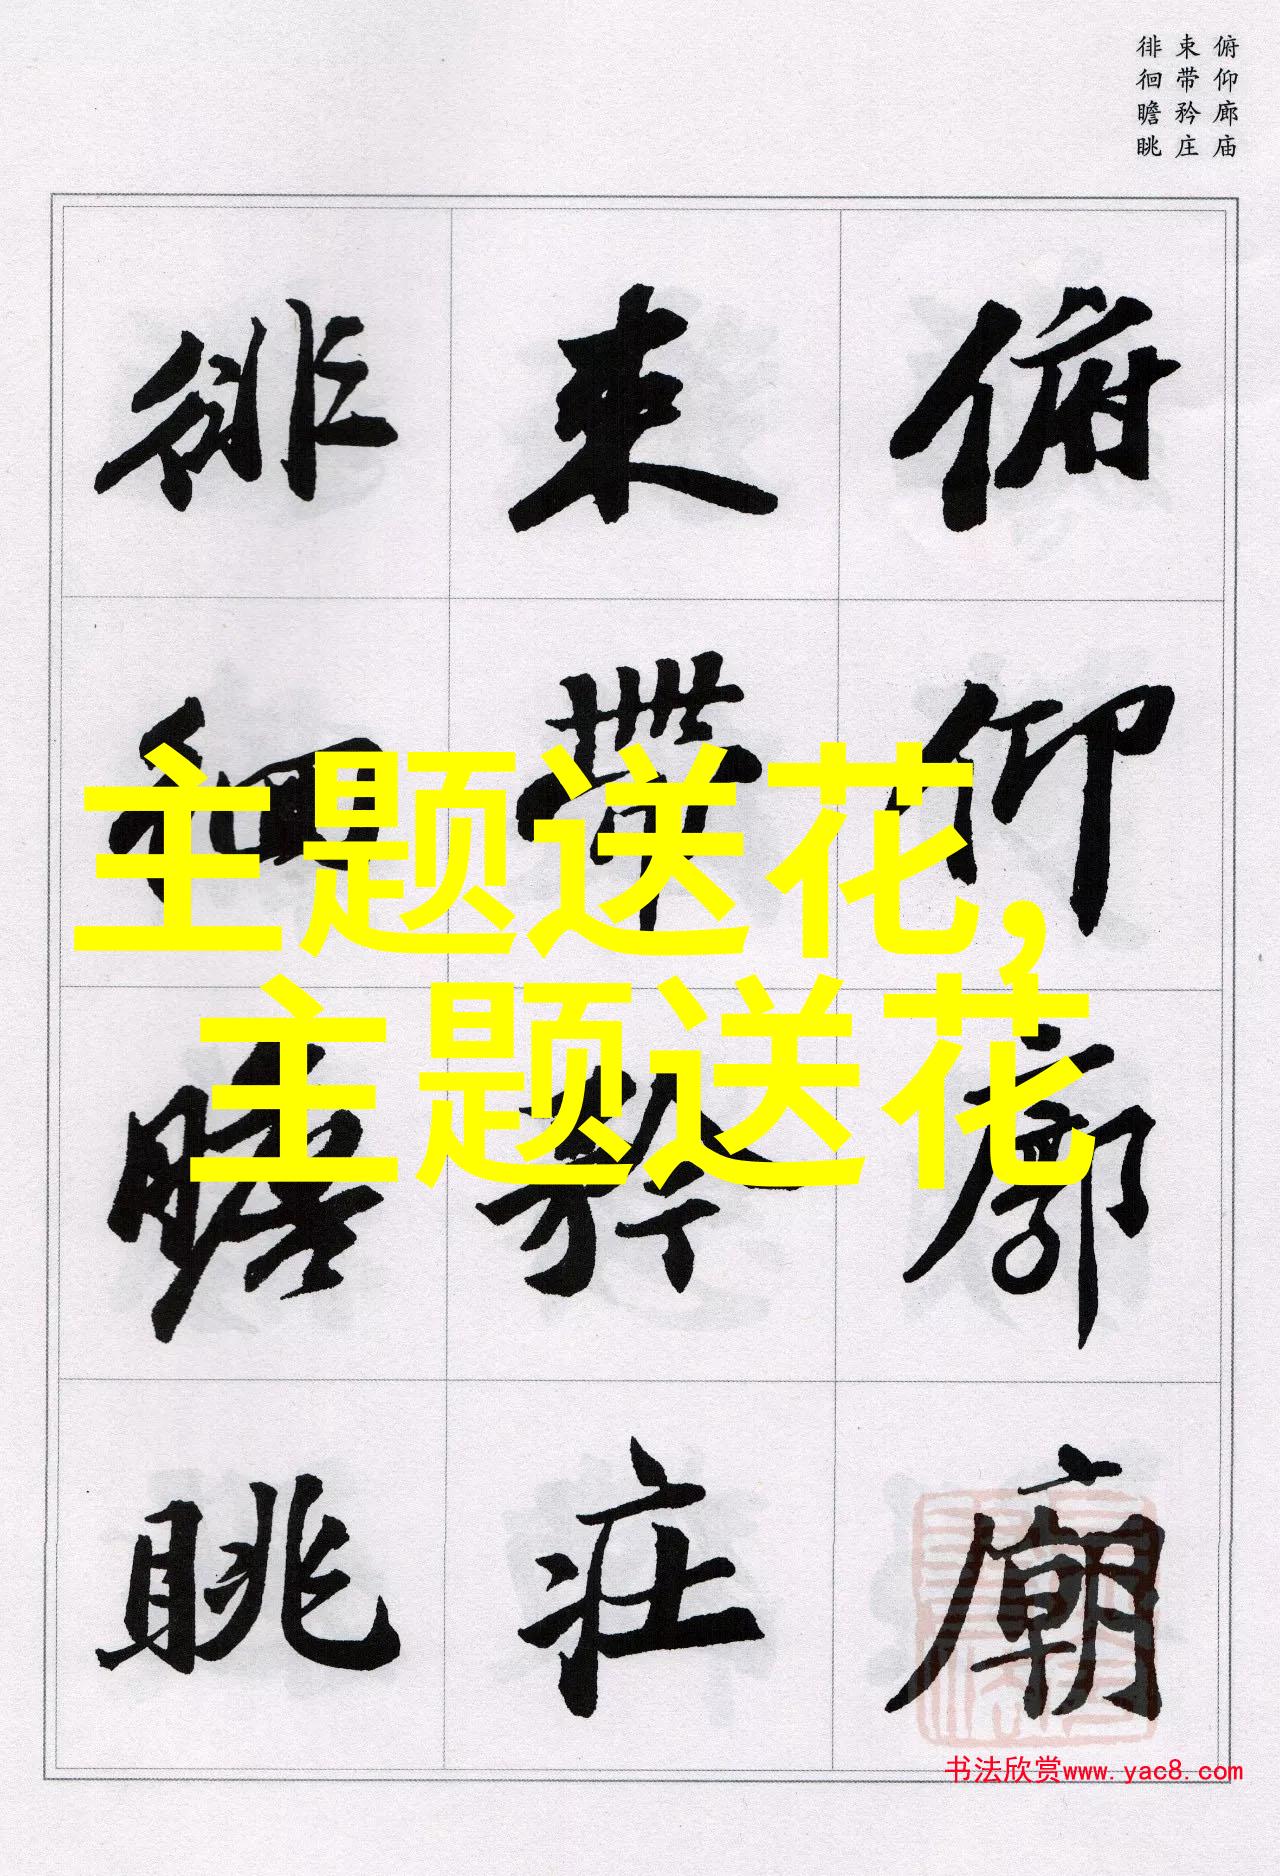 俯仰廊庙
束带矜庄
徘徊瞻眺
俯仰廊廟
束帶矜莊
徘徊瞻眺
主题送花,
主题送花
书法欣赏www.yac8.com